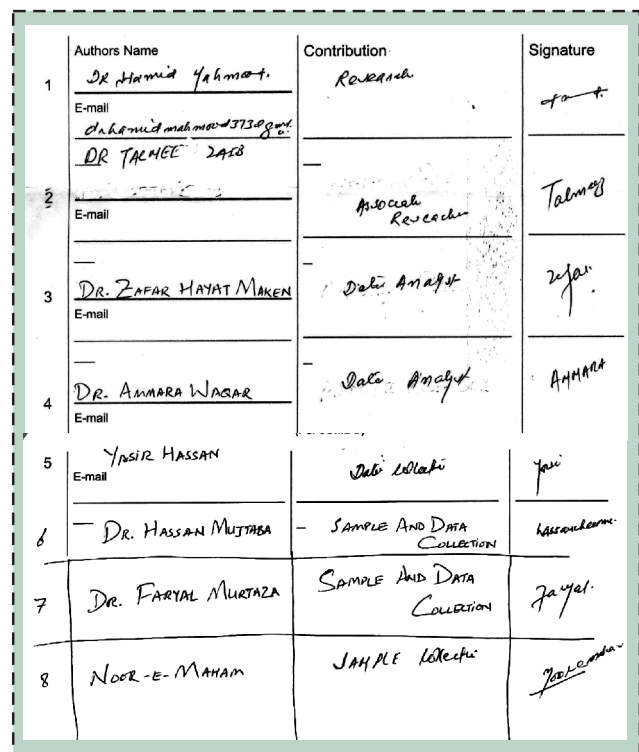 Authors Name Contribution Signature
1 DR Hamid Research
E-mail
drhamidmahmood373@gmail.
DR TALMEE ZAIB
2 Associate Researcher Talmeez
E-mail
3 DR. ZAFAR HAYAT MAKEN Data Analyst Zafar
E-mail
4 DR. AMMARA WAQAR Data Analyst AMMARA
E-mail
5 YASIR HASSAN Data Collectio Yasir
E-mail
6 DR. HASSAN MUJTABA SAMPLE AND DATA
COLLECTION
7 DR. FARYAL MURTAZA SAMPLE AND DATA
COLLECTION Faryal.
8 NOOR-E-MAHAM SAMPLE Collectio